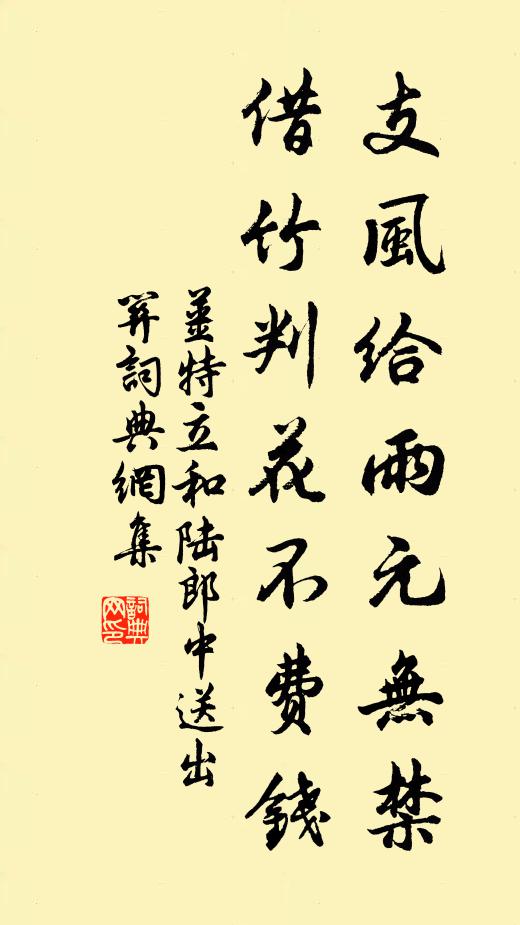 支風給雨元無禁
借竹判花不費錢
薑特立和陆郎中送出
笄詞典網集
詞典网印